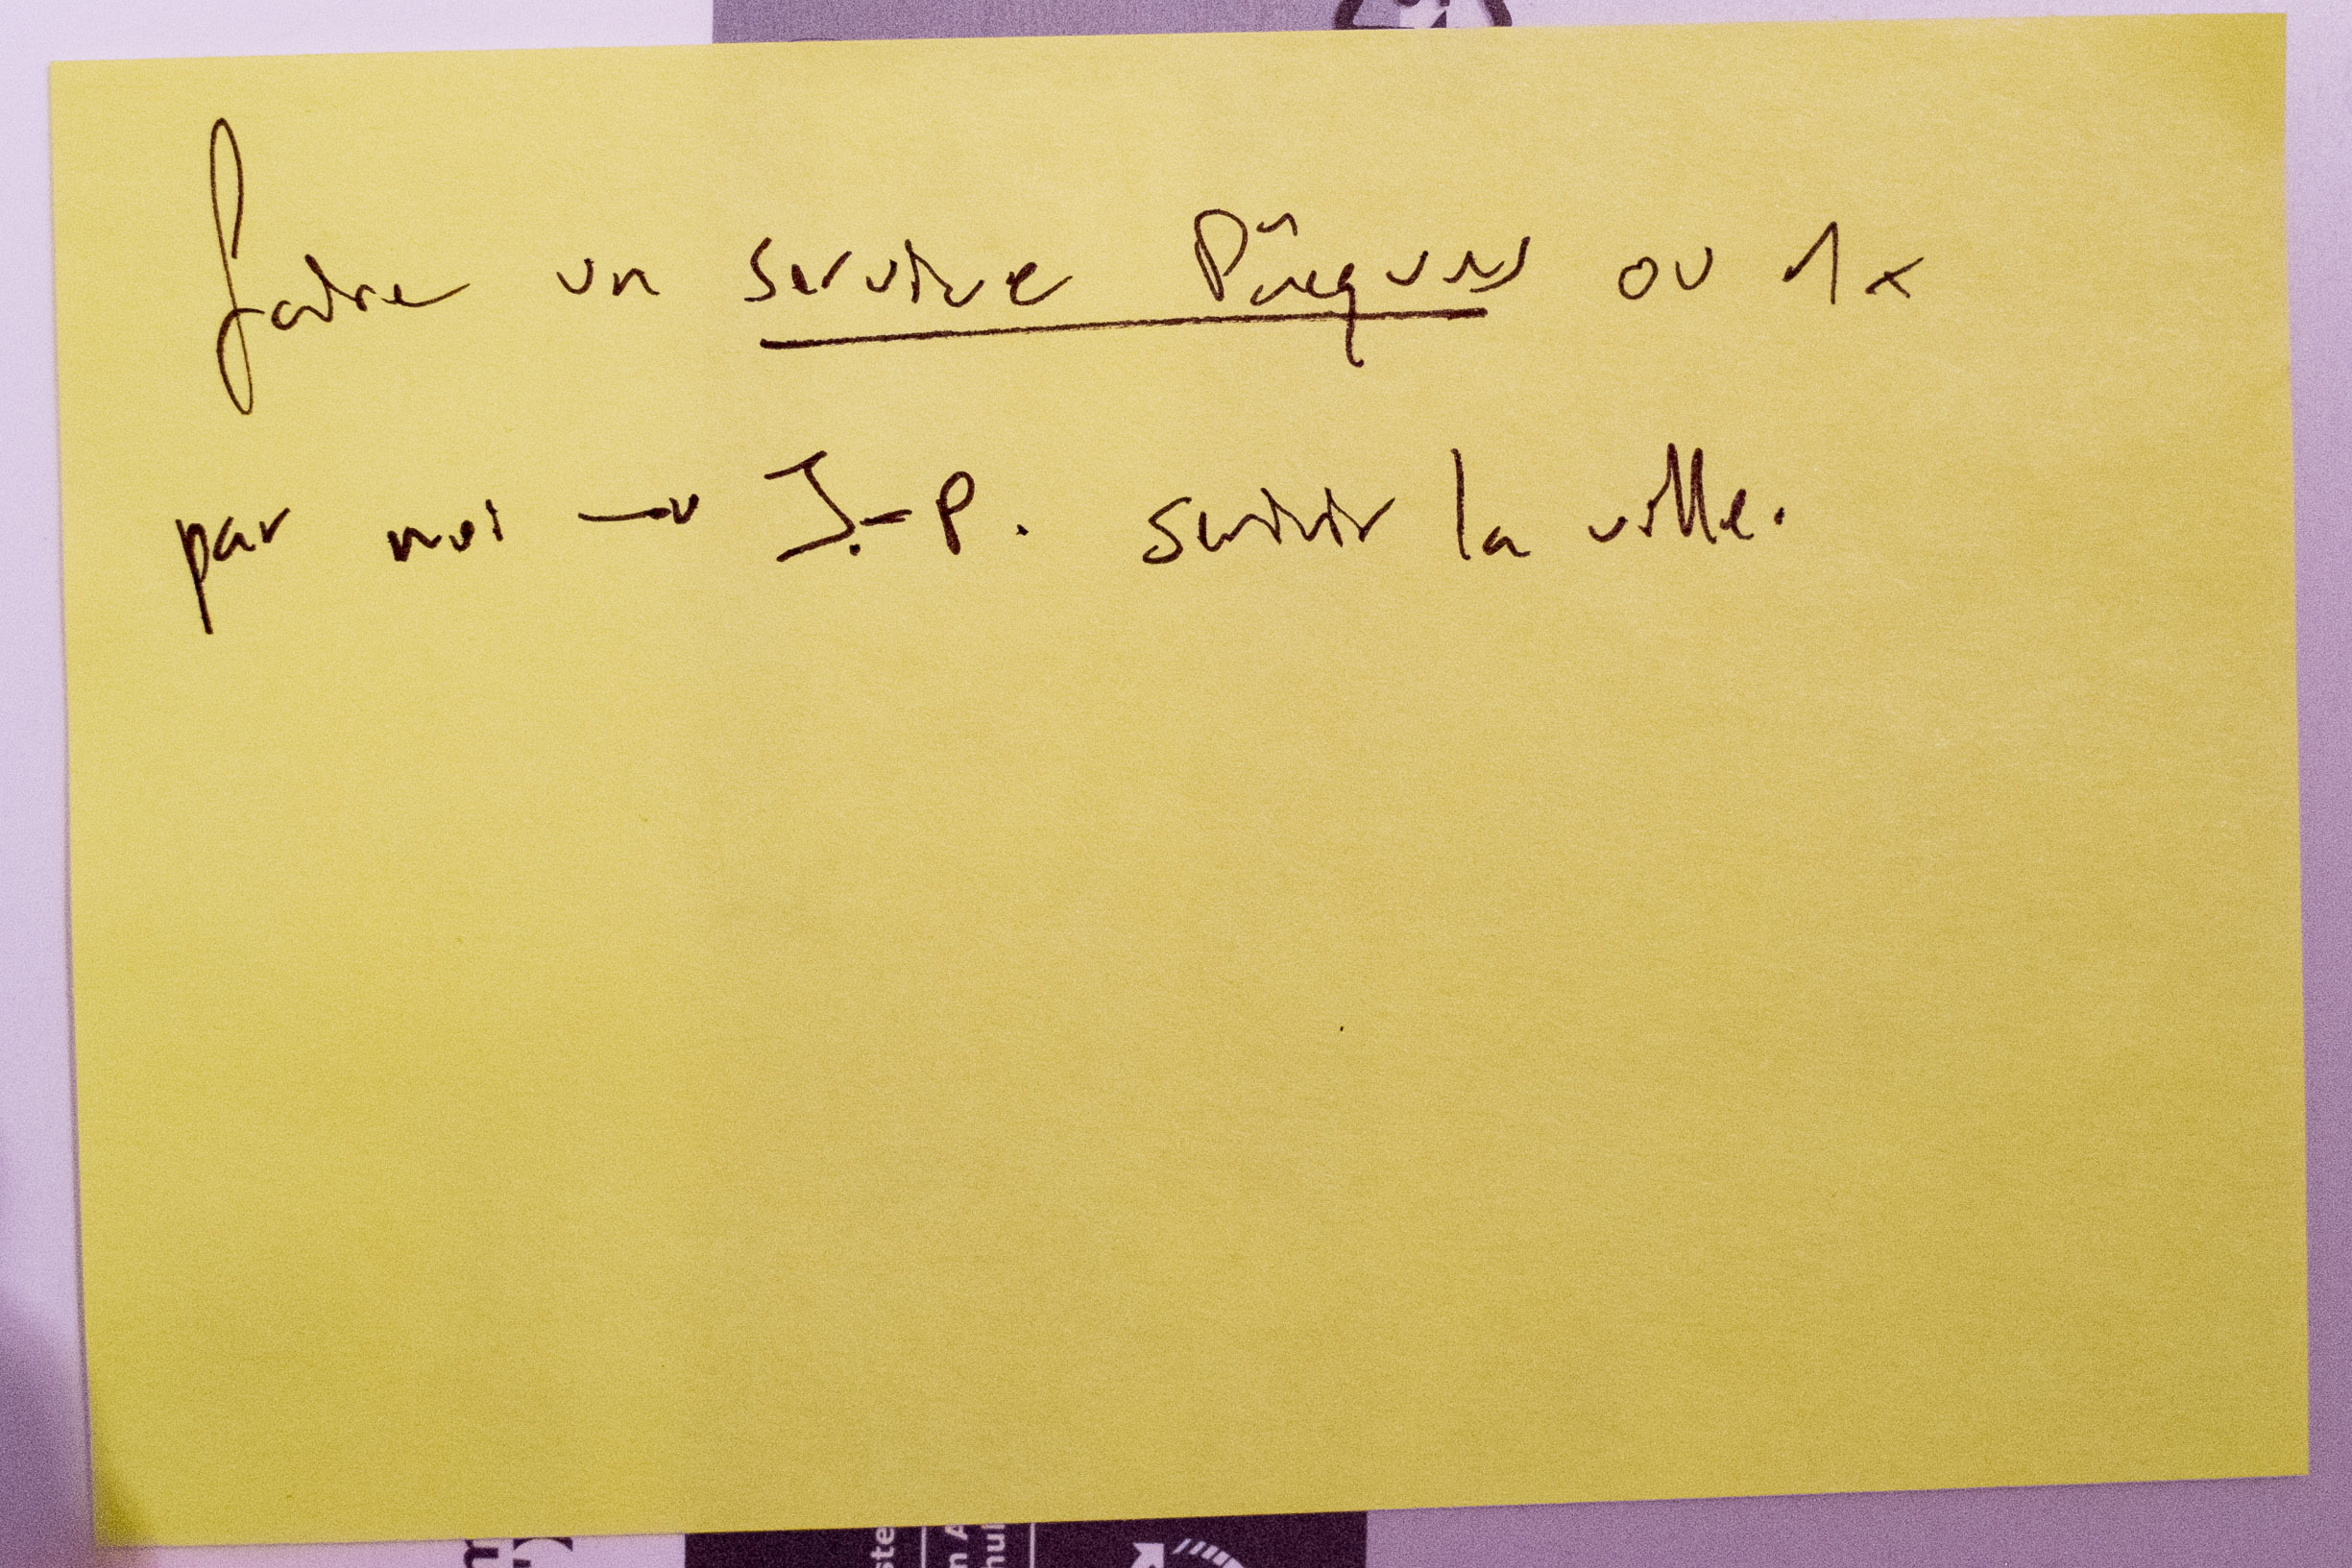 faire un service Pâques ou 1x
par moi → J.-P. servir la ville.
ste
n A
hul